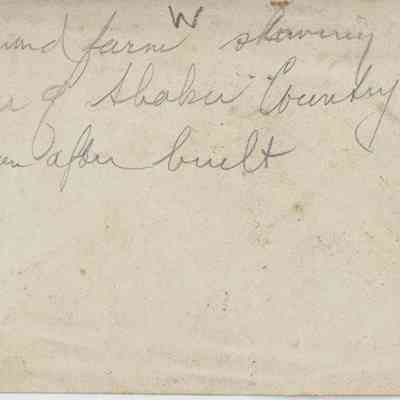 W
und farm showing
r of Shaker Country
on after built